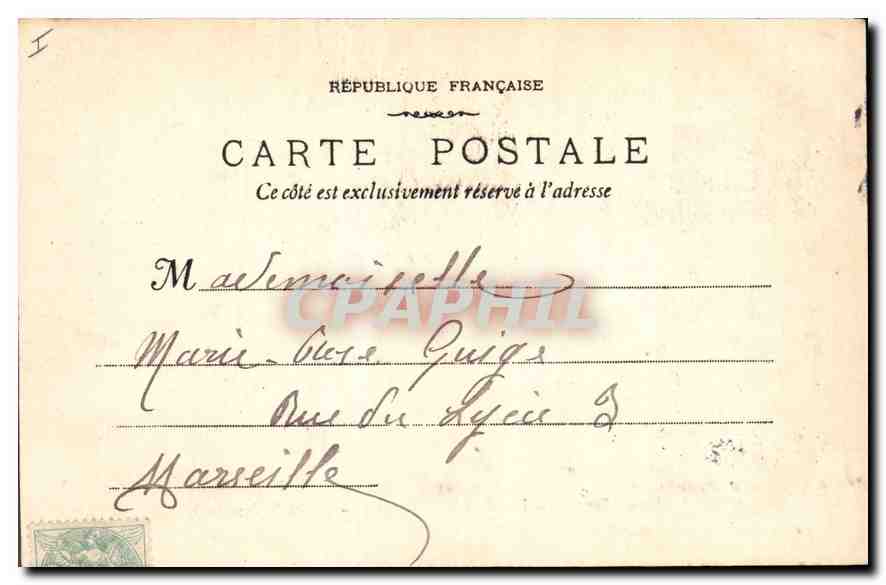 I
RÉPUBLIQUE FRANÇAISE
CARTE POSTALE
Ce côté est exclusivement réservé à l'adresse
Mademoiselle
CPAPHIL
Marie-Guige
Rue du Lycée 3
Marseille